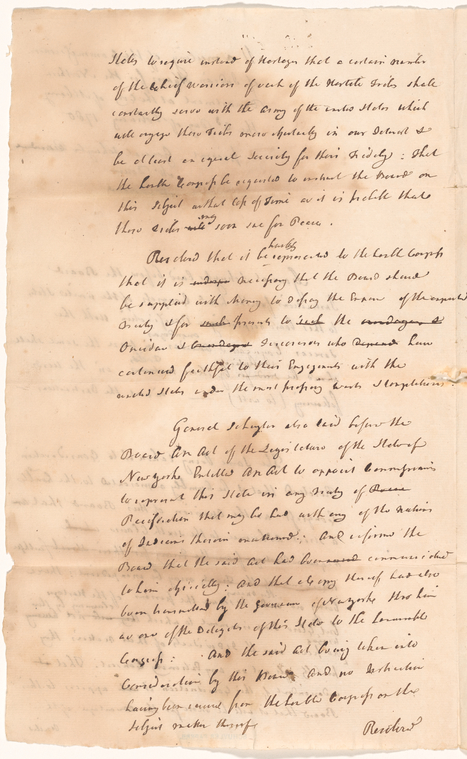 States to require instead of Hostages that a certain number
of the Chief Warriors of each of the Hostile Tribes shall
constantly serve with the Army of the united States which
will engage those Tribes more effectually in our Interest &
be at least an equal Security for their Fidelity: That
the honble Congress be requested to instruct the Board on
this Subject without loss of Time as it is probable that
those Tribes will may soon sue for Peace.
Resolved that it be humbly represented to the honble Congress
that it is necessary that the Board should
be supplied with Money to defray the Expence of the expected
Treaty & for such presents to such the
Oneidas & Tuscaroras who have
continued faithful to their Engagements with the
united States under the most pressing wants & temptations
General Schuyler also laid before the
Board An Act of the Legislature of the State of
New york Entitled An Act to appoint Commissioners
to represent this State in any Treaty of Peace
Pacification that may be had with any of the Nations
of Indians therein mentioned: And informs the
Board that the said Act had been communicated
to him officially: And that a Copy thereof had also
been transmitted by the Governor of New york to him
as one of the Delegates of this State to the honourable
Congress: And the said Act being taken into
Consideration by this Board and no Instruction
having been received from the honble Congress on the
subject matter thereof
Resolved